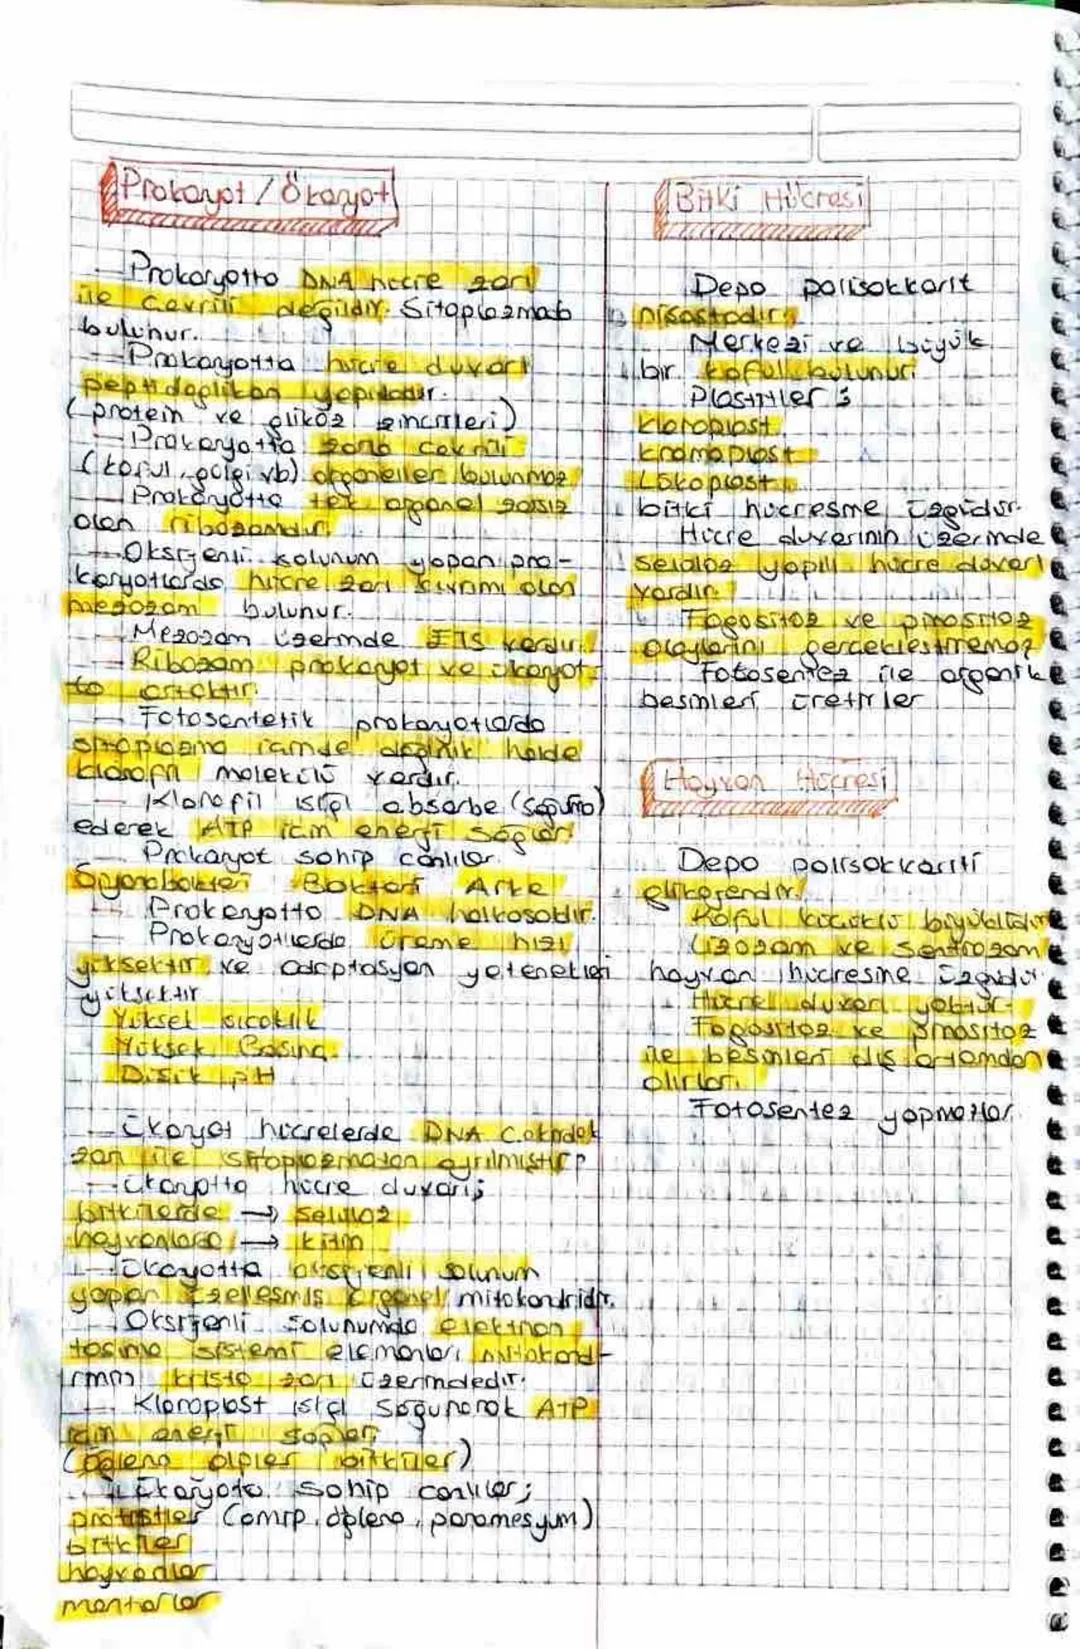 Prokaryot / Ökaryot
— Prokaryotta DNA hücre zarı
ile çevrili değildir. Sitoplazmada
bulunur.
— Prokaryotta hücre duvarı
peptidoglikan yapılıdır.
(protein ve glikoz zincirleri)
— Prokaryotta zarla çevrili
(koful, golgi vb) organeller bulunmaz
— Prokaryotta tek organel zarsız
olan ribozomdur.
— Oksijenli solunum yapan pro-
karyotlarda hücre zarı kıvrımı olan
mezozom bulunur.
— Mezozom üzerinde ETS vardır.
— Ribozom prokaryot ve ökaryot-
ta ortaktır.
— Fotosentetik prokaryotlarda
sitoplazma içinde dağınık halde
klorofil molekülü vardır.
— Klorofil ışığı absorbe (soğurma)
ederek ATP için enerji sağlar.
— Prokaryot sahip canlılar.
Siyanobakteri Bakteri Arke
— Prokaryotta DNA halkasaldır.
— Prokaryotlarda üreme hızı
yüksektir ve adaptasyon yetenekleri
yüksektir
Yüksek sıcaklık
Yüksek Basınç
Düşük pH
— Ökaryot hücrelerde DNA çekirdek
zarı ile sitoplazmadan ayrılmıştır
— Ökaryotta hücre duvarı;
bitkilerde → selüloz
hayvanlarda → kitin
— Ökaryotta oksijenli solunum
yapan özelleşmiş organel mitokondridir.
— Oksijenli solunumda elektron
taşıma sistemi elemanları mitokond-
rinin krista zarı üzerindedir.
— Kloroplast ışığı soğurarak ATP
için enerji sağlar
(öglena algler bitkiler)
— Ökaryota sahip canlılar;
protistler (amip, öglena, paramesyum)
bitkiler
hayvanlar
mantarlar
Bitki Hücresi
Depo polisakkarit
nişastadır.
Merkezi ve büyük
bir koful bulunur.
Plastitler;
kloroplast
kromoplast
Lökoplast
bitki hücresine özgüdür.
Hücre duvarının üzerinde
selüloz yapılı hücre duvarı
vardır.
Fagositoz ve pinositoz
olaylarını gerçekleştiremez
Fotosentez ile organik
besinleri üretirler
Hayvan Hücresi
Depo polisakkariti
glikojendir.
Koful küçüklü büyüklüdür
Lizozom ve Sentrozom
hayvan hücresine özgüdür
Hücre duvarı yoktur.
Fagositoz ve pinositoz
ile besinleri dış ortamdan
alırlar.
Fotosentez yapmazlar.